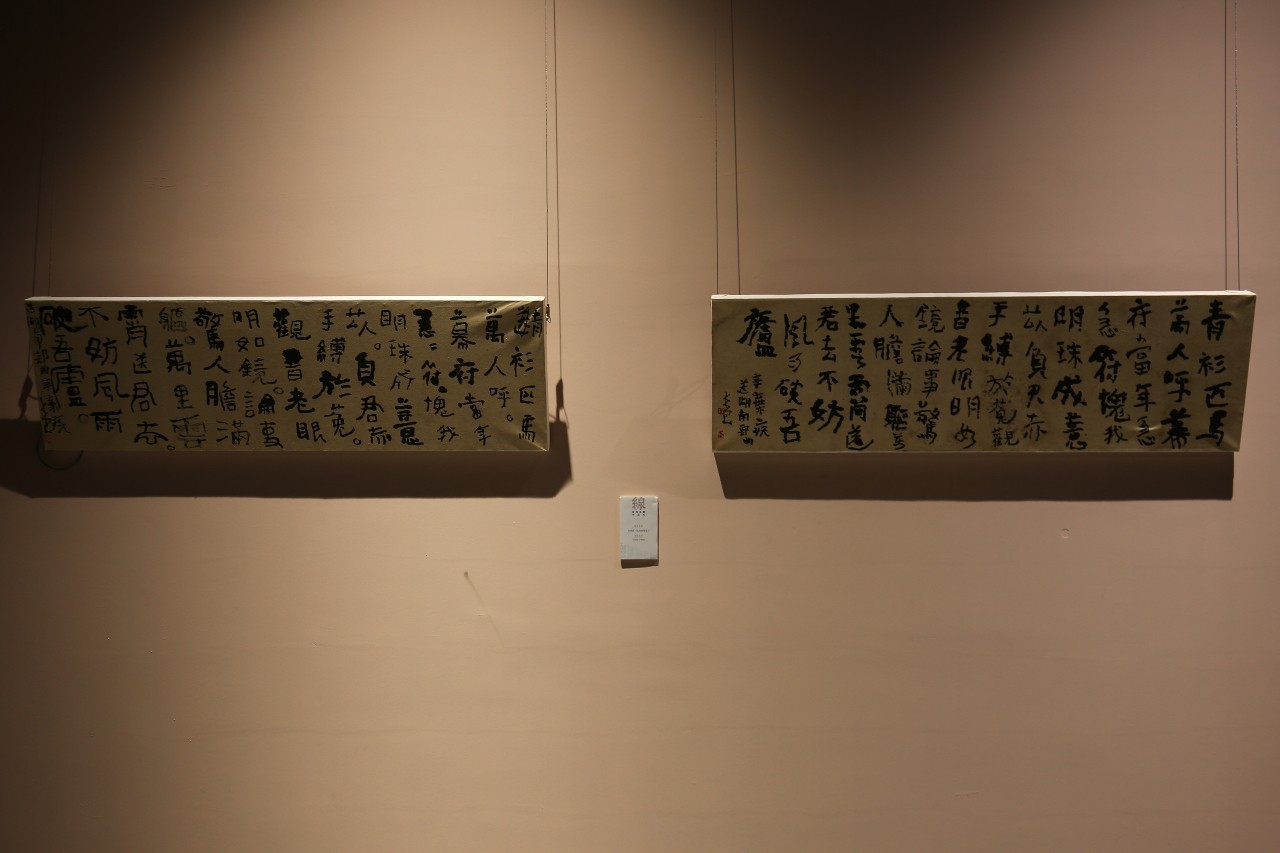 青衫匹馬
萬人呼幕
府當年急
急符愧我
明珠成薏
苡負君赤
手縛於菟觀
書老眼明如
鏡論事驚
人膽滿軀萬
里雲霄送
君去不妨
風雨破吾
廬
辛棄疾
送湖南部曲
青衫匹馬
萬人呼。
幕府當年
急急符。愧我
明珠成薏
苡。負君赤
手縛於菟。
觀書老眼
明如鏡。論事
驚人膽滿
軀。萬里雲
霄送君去。
不妨風雨
破吾廬。
線